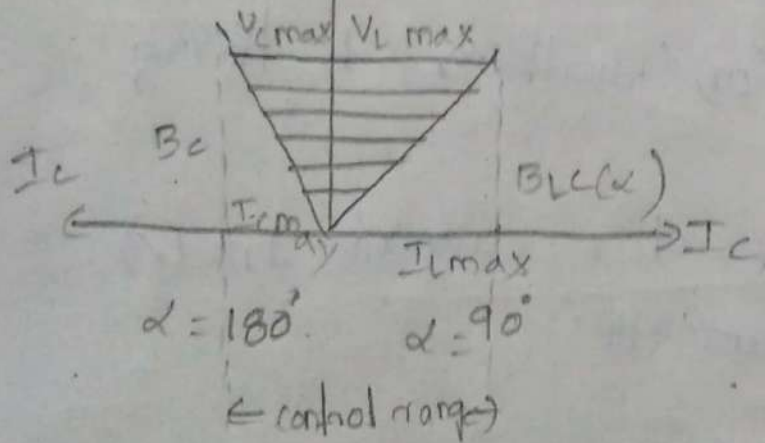 Vcmax VL max
Bc
Ic
BLC(α)
Icmax
ILmax
Ic
α = 180°
α = 90°
← control rang→